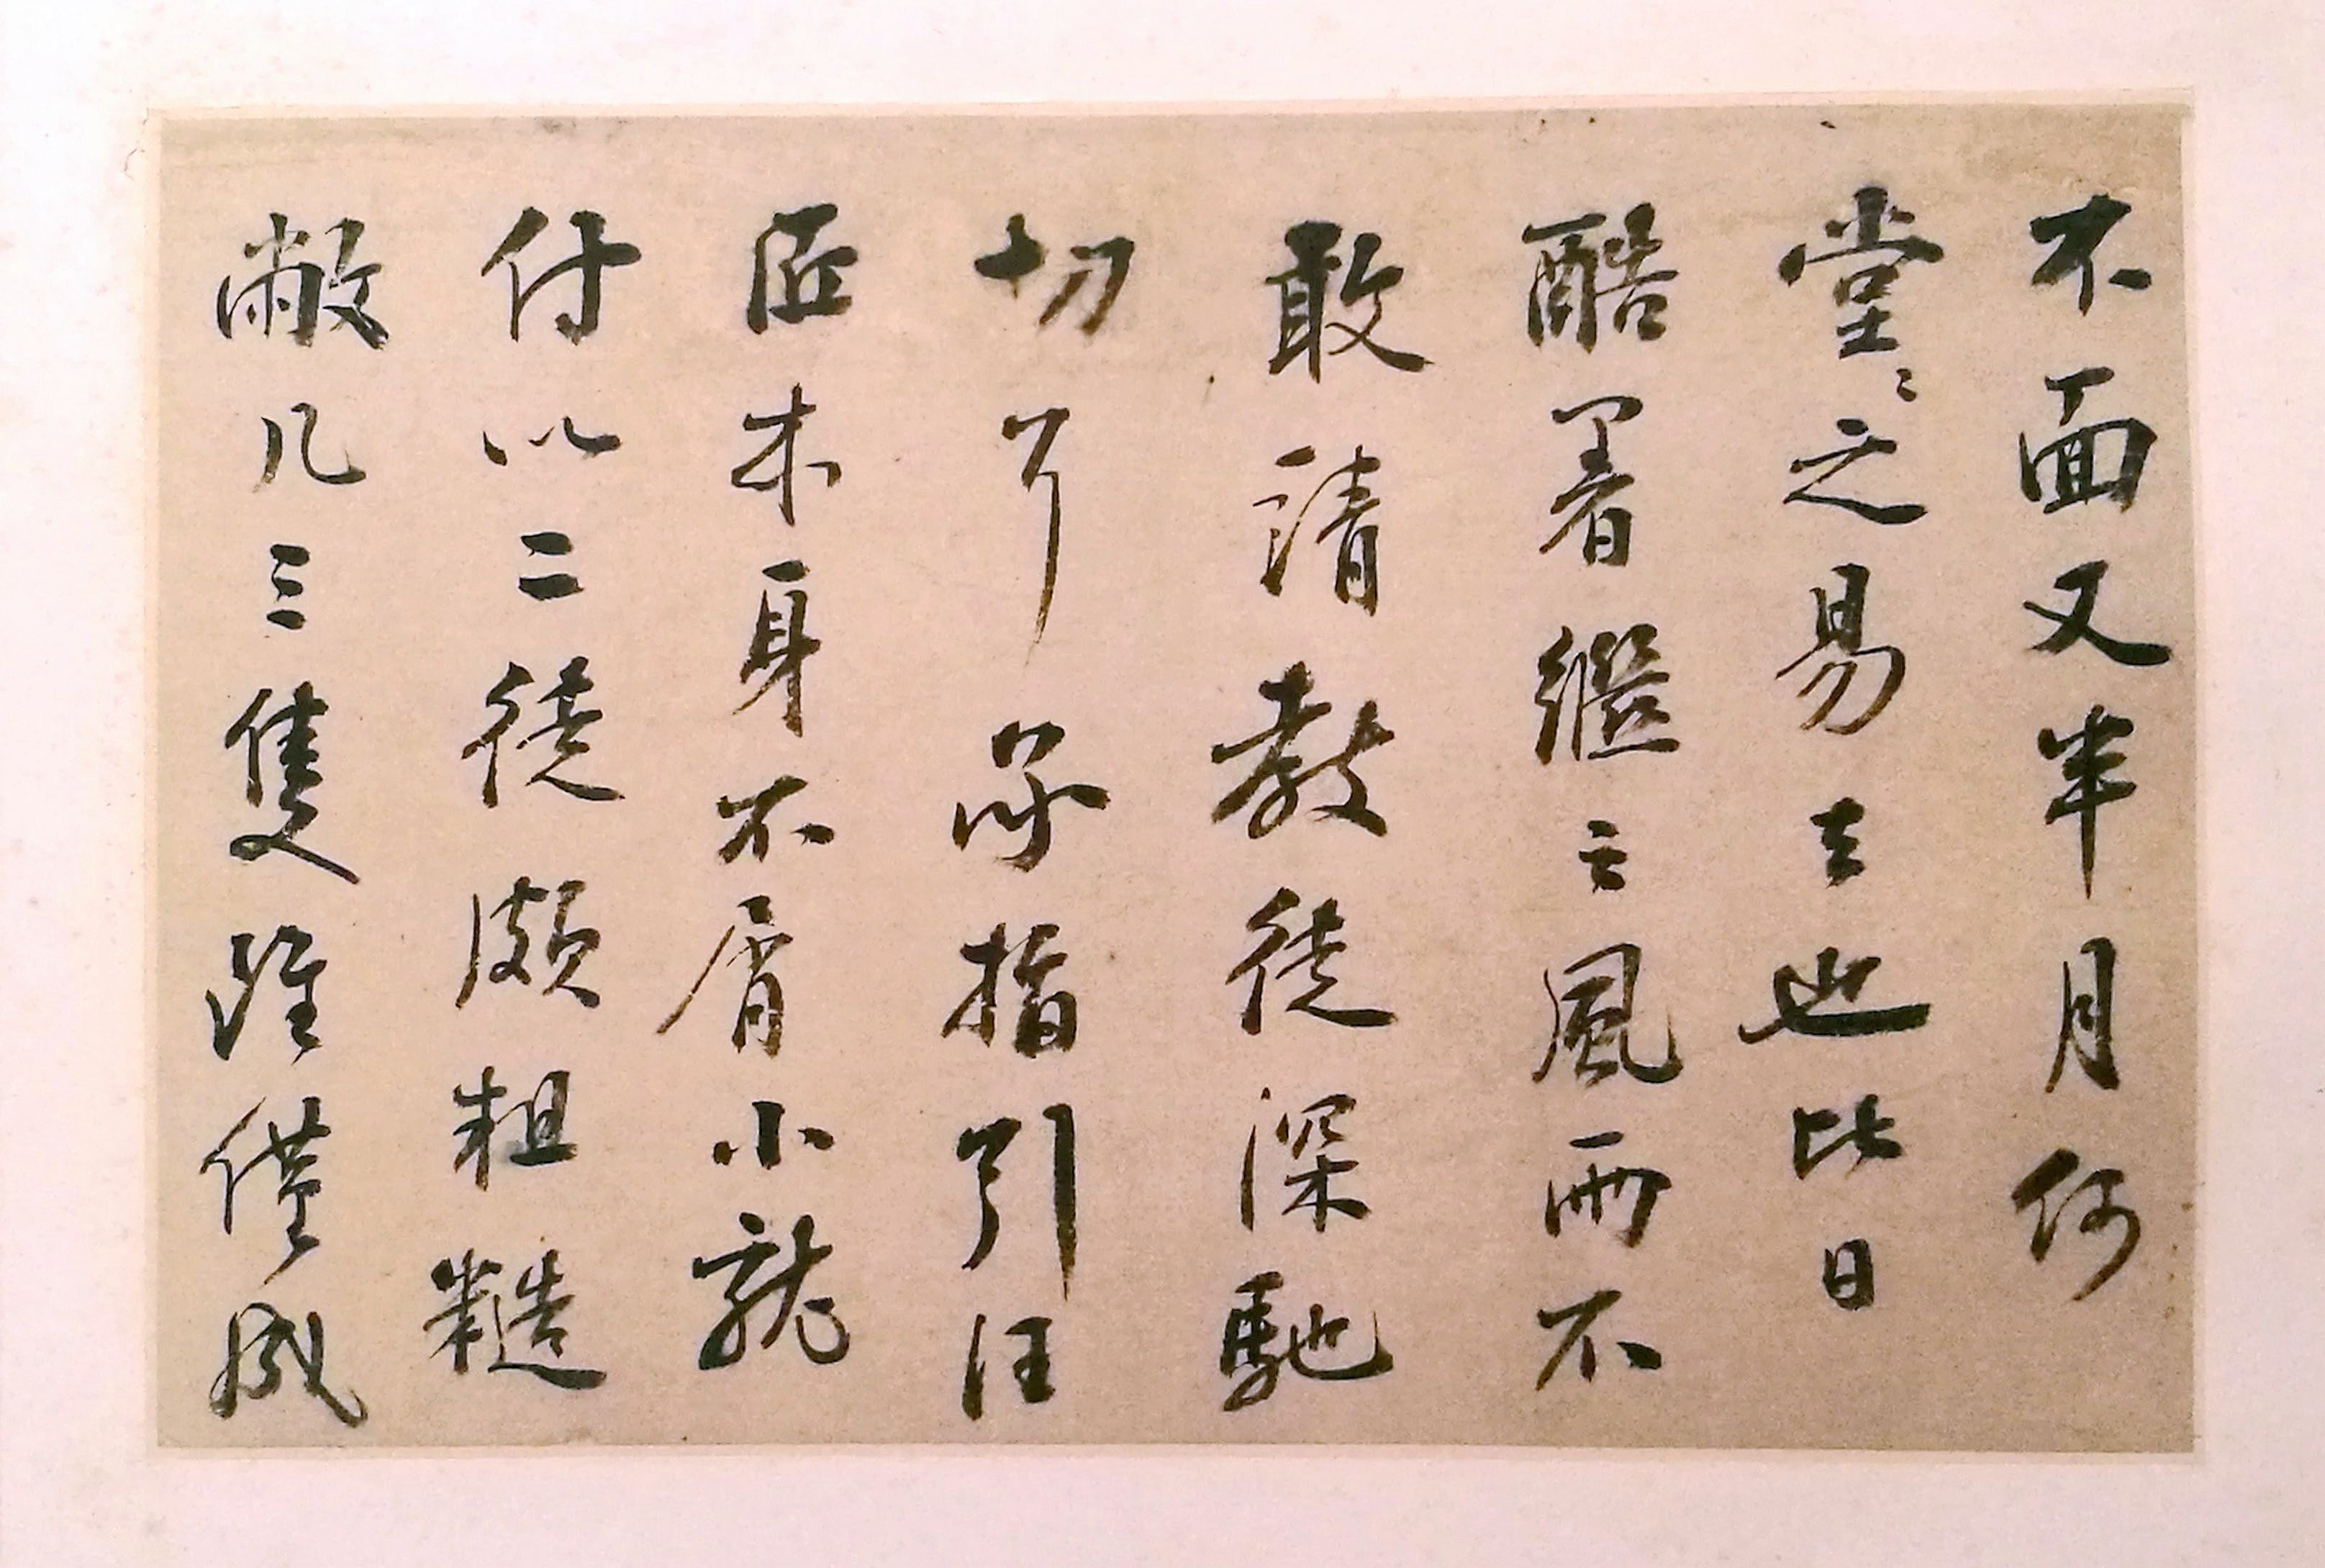 不面又半月何
堂〻之易去也比日
酷暑繼之風雨不
敢請教徒深馳
切耳承指引汪
匠本身不屑小就
付以二徒頗粗糙
敝几三隻雖僅成